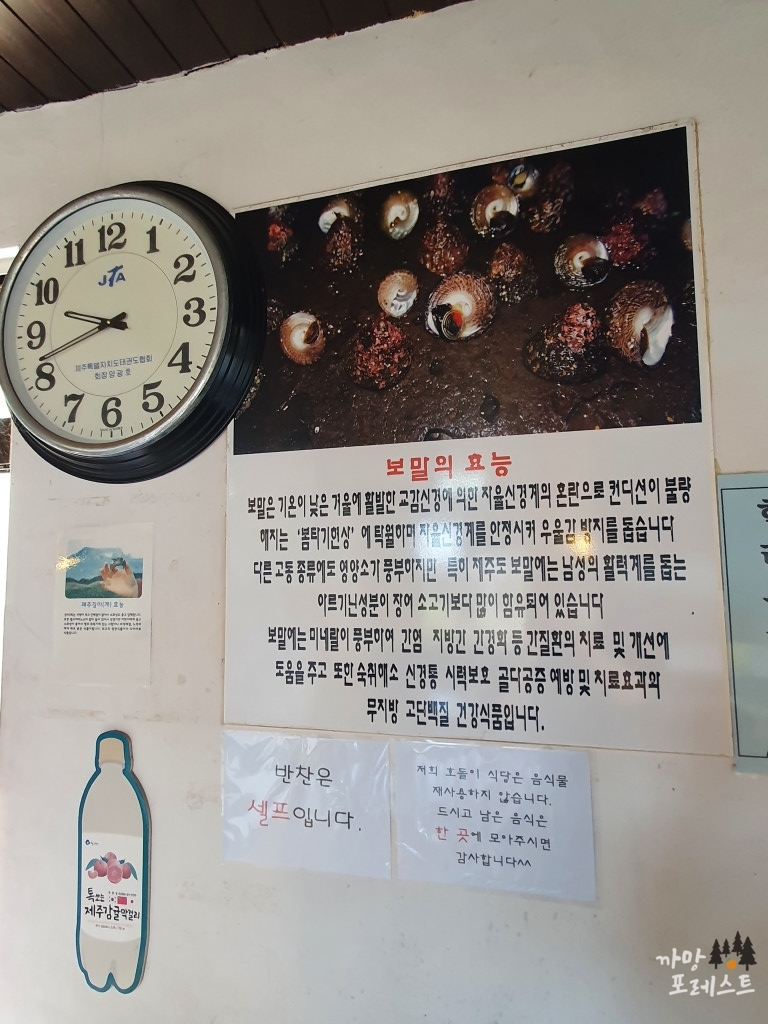 12
11
1
10
2
JTA
9
3
제주특별자치도태권도협회
회장 양 광 호
8
4
7
6
5
보말의 효능
보말은 기온이 낮은 겨울에 활발한 교감신경에 의한 자율신경계의 혼란으로 컨디션이 불량
해지는 '봄탁기현상' 에 탁월하며 자율신경계를 안정시켜 우울감 방지를 돕습니다
다른 고동 종류에도 영양소가 풍부하지만 특히 제주도 보말에는 남성의 활력계를 돕는
아르기닌성분이 장어 소고기보다 많이 함유되어 있습니다
보말에는 미네랄이 풍부하여 간염 지방간 간경화 등 간질환의 치료 및 개선에
도움을 주고 또한 숙취해소 신경통 시력보호 골다공증 예방 및 치료효과와
무지방 고단백질 건강식품입니다.
효능
반찬은
셀프입니다.
저희 호돌이 식당은 음식물
재사용하지 않습니다.
드시고 남은 음식은
한 곳에 모아주시면
감사합니다^^
톡쏘는
제주감귤막걸리
까망
포레스트